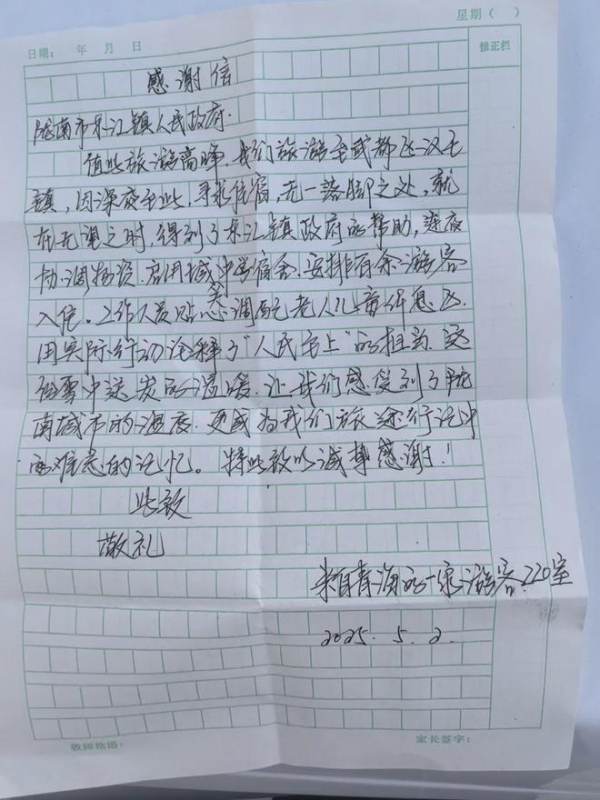 星期（ ）
日期： 年 月 日
修正栏
感谢信
陇南市东江镇人民政府.
值此旅游高峰，我们旅游至武都区汉王
镇，因深夜至此，寻求住宿，无一落脚之处，就
在无望之时，得到了东江镇政府的帮助，连夜
协调物资，启用城中学宿舍，安排百余游客
入住。工作人员贴心调配老人儿童休息区
用实际行动诠释了“人民至上”的担当，这
份雪中送炭的温暖，让我们感受到了陇
南城市的温度，更成为我们旅途行记中
难忘的记忆。特此致以诚挚感谢！
此致
敬礼
来自青海的一家游客，220室
2025.5.2.
教师批语：
家长签字：